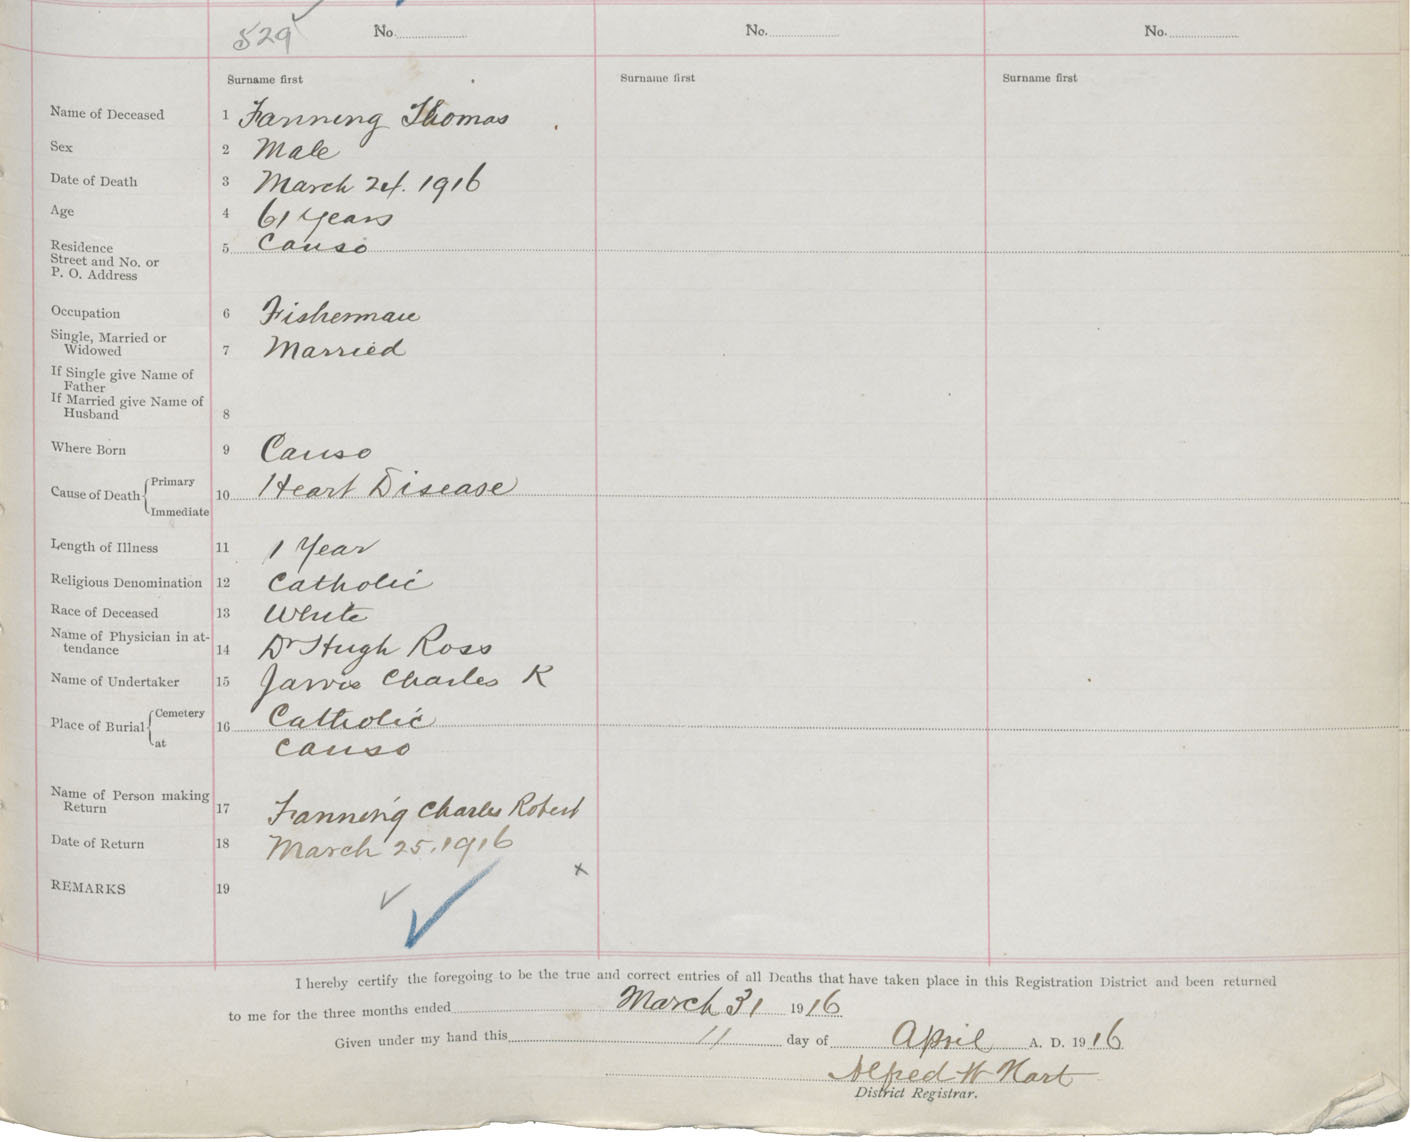 529 No. No. No.
Surname first Surname first Surname first
Name of Deceased 1 Fanning Thomas
Sex 2 Male
Date of Death 3 March 24. 1916
Age 4 61 Years
Residence 5 Canso
Street and No. or
P. O. Address
Occupation 6 Fisherman
Single, Married or
Widowed 7 Married
If Single give Name of
Father
If Married give Name of
Husband 8
Where Born 9 Canso
Primary
Cause of Death 10 Heart Disease
Immediate
Length of Illness 11 1 Year
Religious Denomination 12 Catholic
Race of Deceased 13 White
Name of Physician in at-
tendance 14 Dr Hugh Ross
Name of Undertaker 15 Jarvis Charles R
Cemetery
Place of Burial 16 Catholic
at Canso
Name of Person making
Return 17 Fanning Charles Robert
Date of Return 18 March 25. 1916
REMARKS 19
I hereby certify the foregoing to be the true and correct entries of all Deaths that have taken place in this Registration District and been returned
to me for the three months ended March 31 1916
Given under my hand this 11 day of April A. D. 1916
Alfred W Hart
District Registrar.